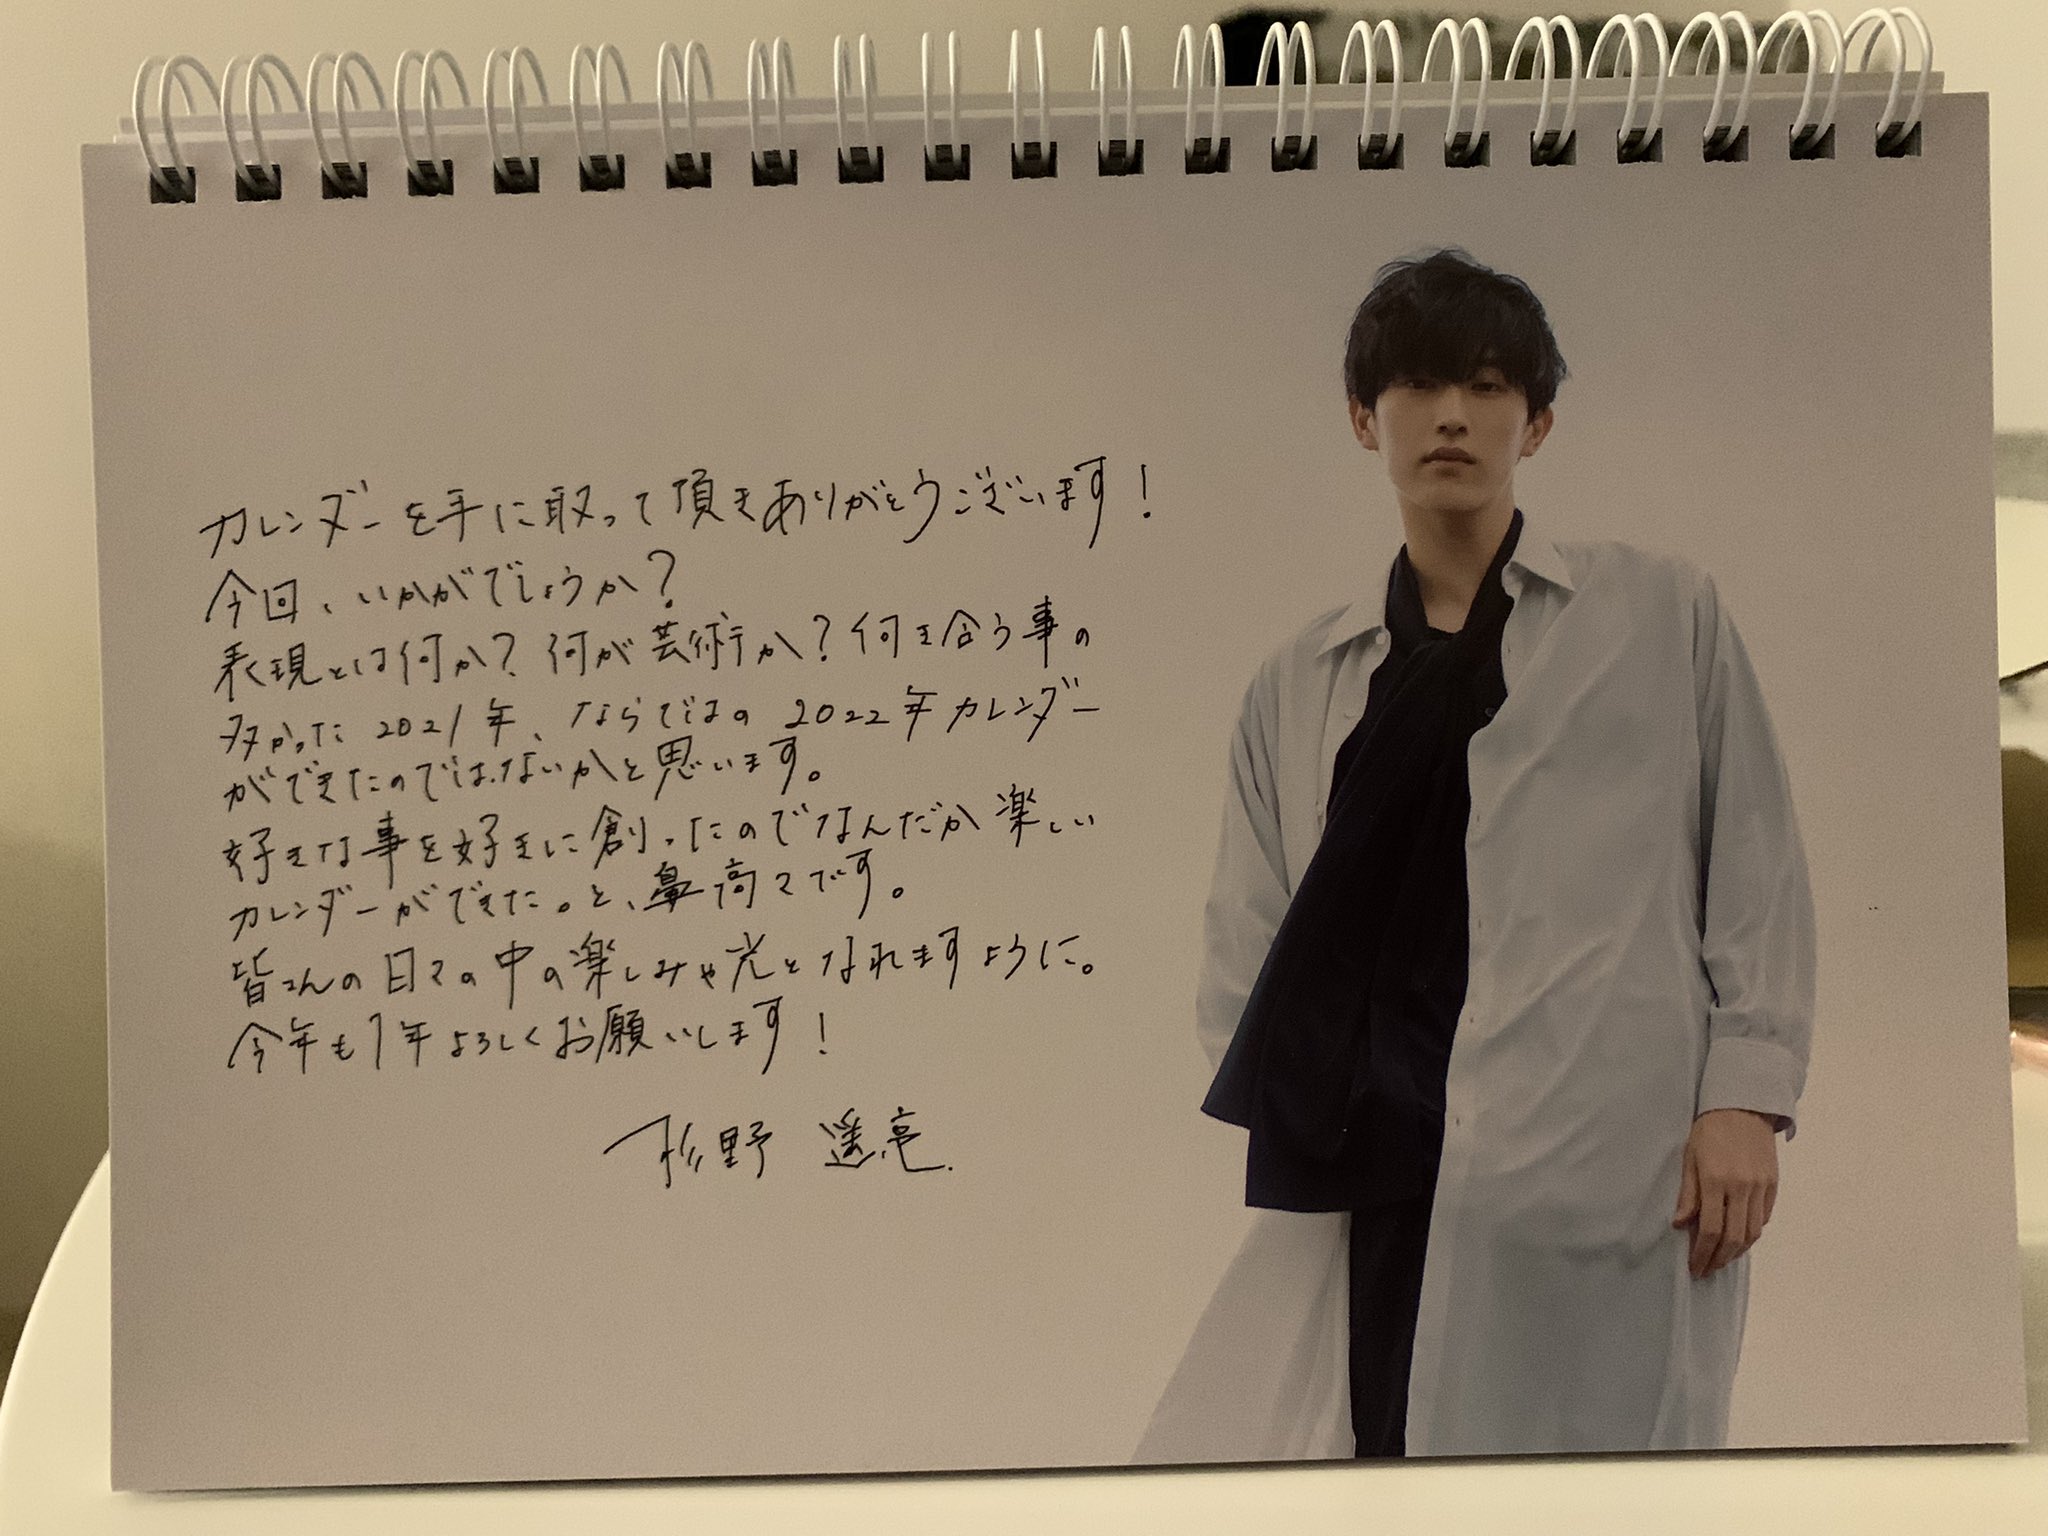 カレンダーを手に取って頂きありがとうございます！
今回、いかがでしょうか？
表現とは何か？何が芸術か？何き合う事の
多かった2021年、ならではの2022年カレンダー
ができたのではないかと思います。
好きな事を好きに創ったのでなんだか楽しい
カレンダーができた。と、鼻高々です。
皆さんの日々の中の楽しみや光となれますように。
今年も1年よろしくお願いします！
杉野 遥亮.